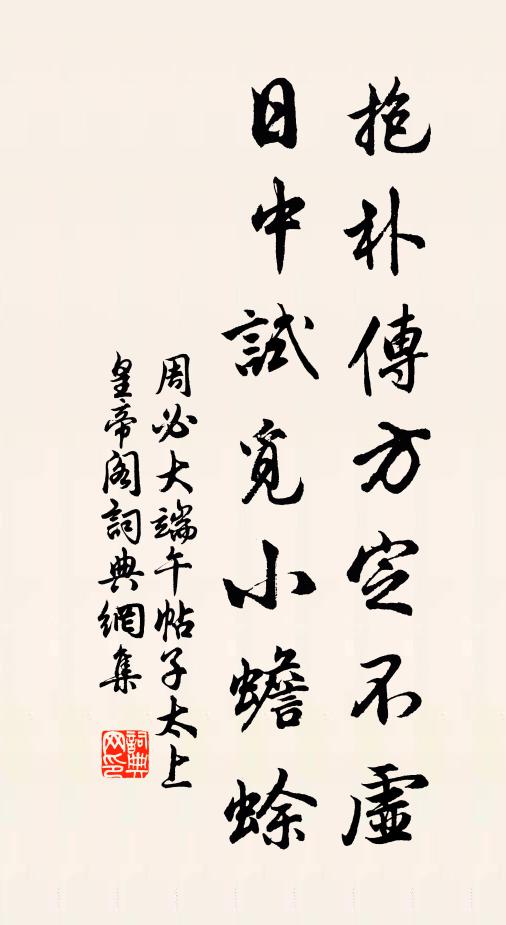 抱朴傳方定不虛
日中試覓小蟾蜍
周必大端午帖子太上
皇帝阁詞典網集
詞典网印